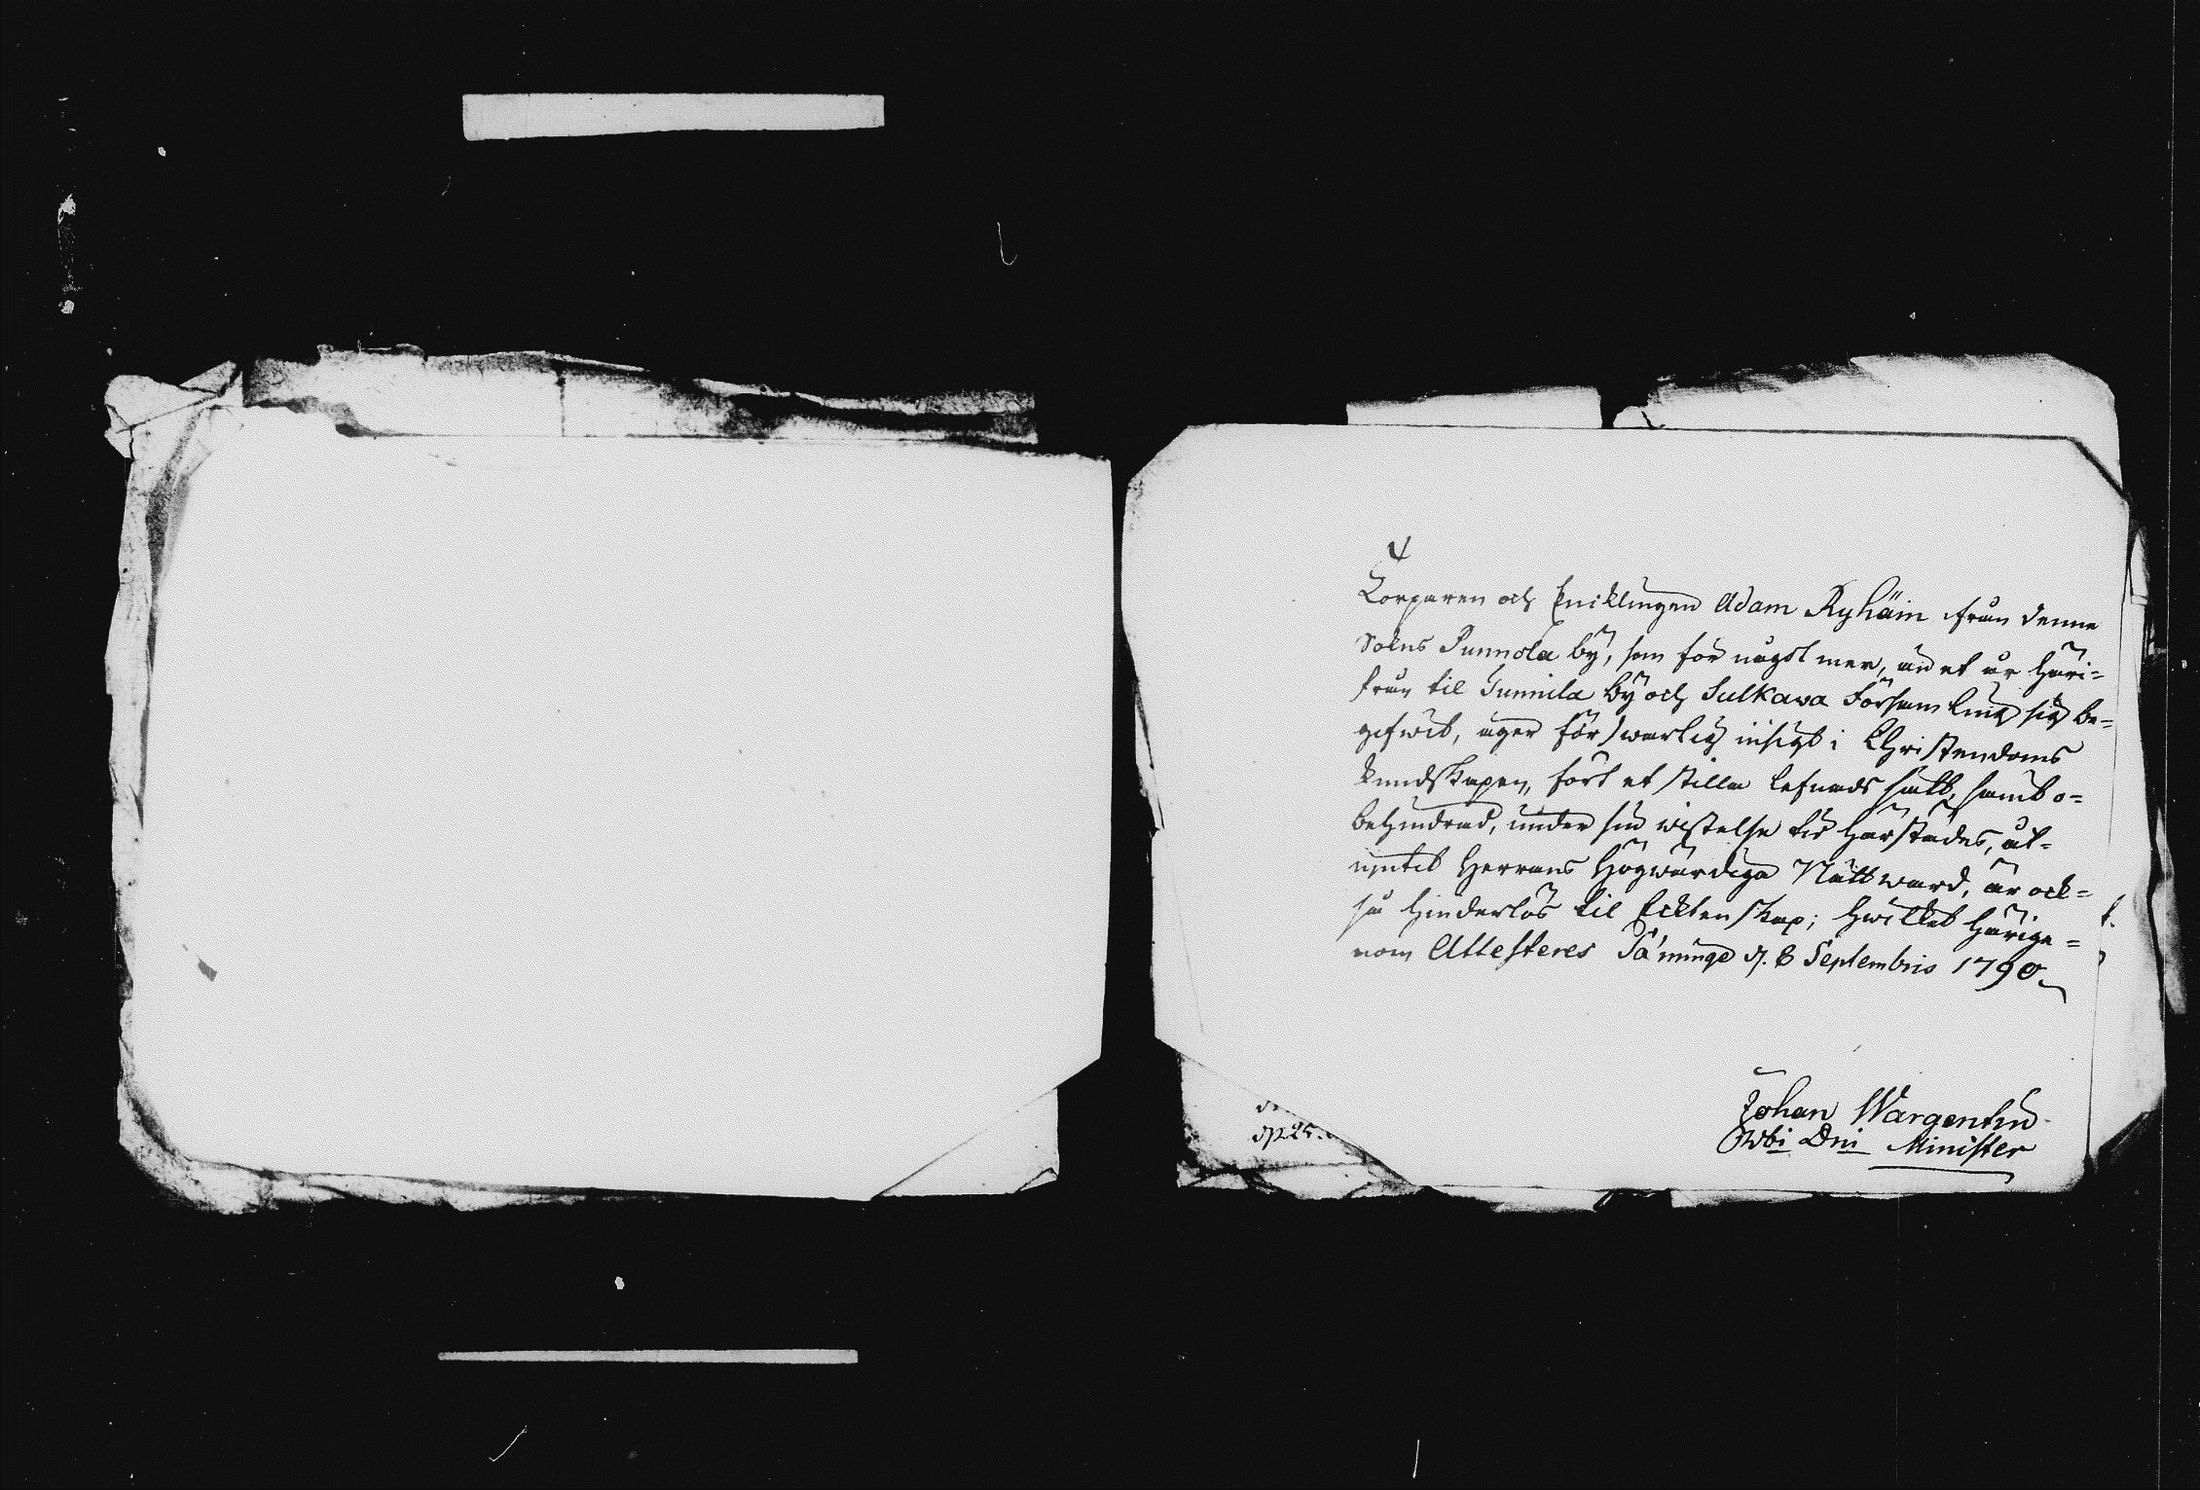 Torparen och Enicklingen Adam Ryhäin ifrån denne
Sokns Punnola by, som för någet mer, än et år häri-
från til Tunnila by och Sulkava Församling sig be-
gifwit, äger förswarlig insigt i Christendoms
kundskapen, fört et stilla lefnads sätt, samt o-
behindrad, under sin wistelse tid härstädes, åt-
niutit Herrans Högwärdiga Nattward, är ock-
så hinderlös til Ecktenskap; hwilket härige-
nom Attesteres Säminge d. 8 Septembris 1790
Johan Wargentin
Wbi Dni Minister